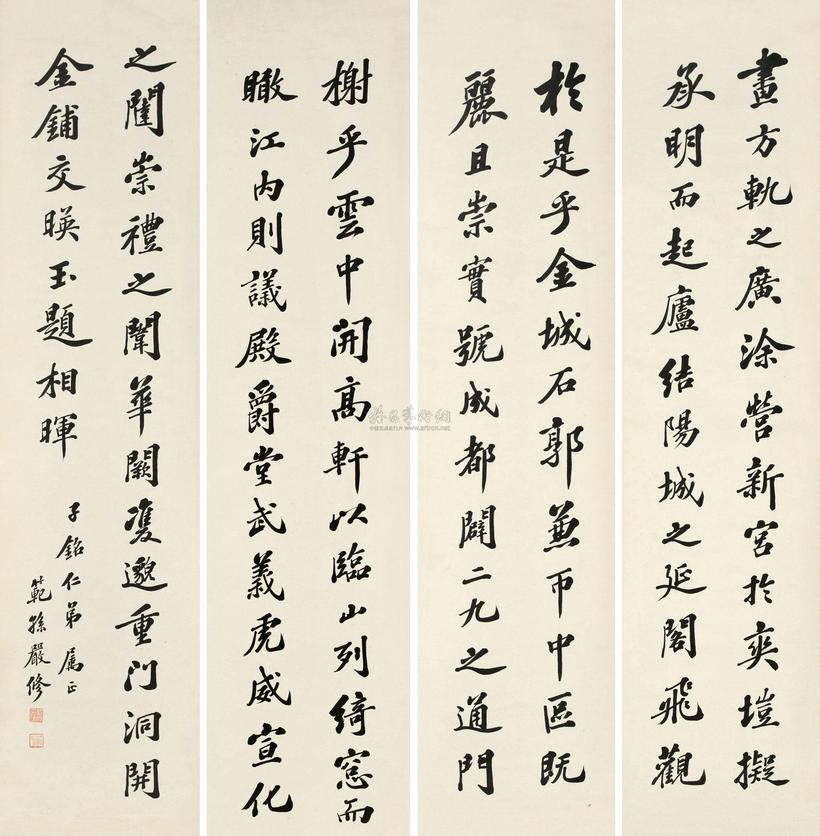 畫方軌之廣涂營新宮於爽塏擬
承明而起廬結陽城之延閣飛觀
於是乎金城石郭兼帀中區既
麗且崇實號成都闢二九之通門
榭乎雲中開高軒以臨山列綺窓而
瞰江內則議殿爵堂武義虎威宣化
之闥崇禮之闈華闕雙邈重門洞開
金鋪交暎玉題相暉
子銘仁弟屬正
範孫嚴修
www.artron.net